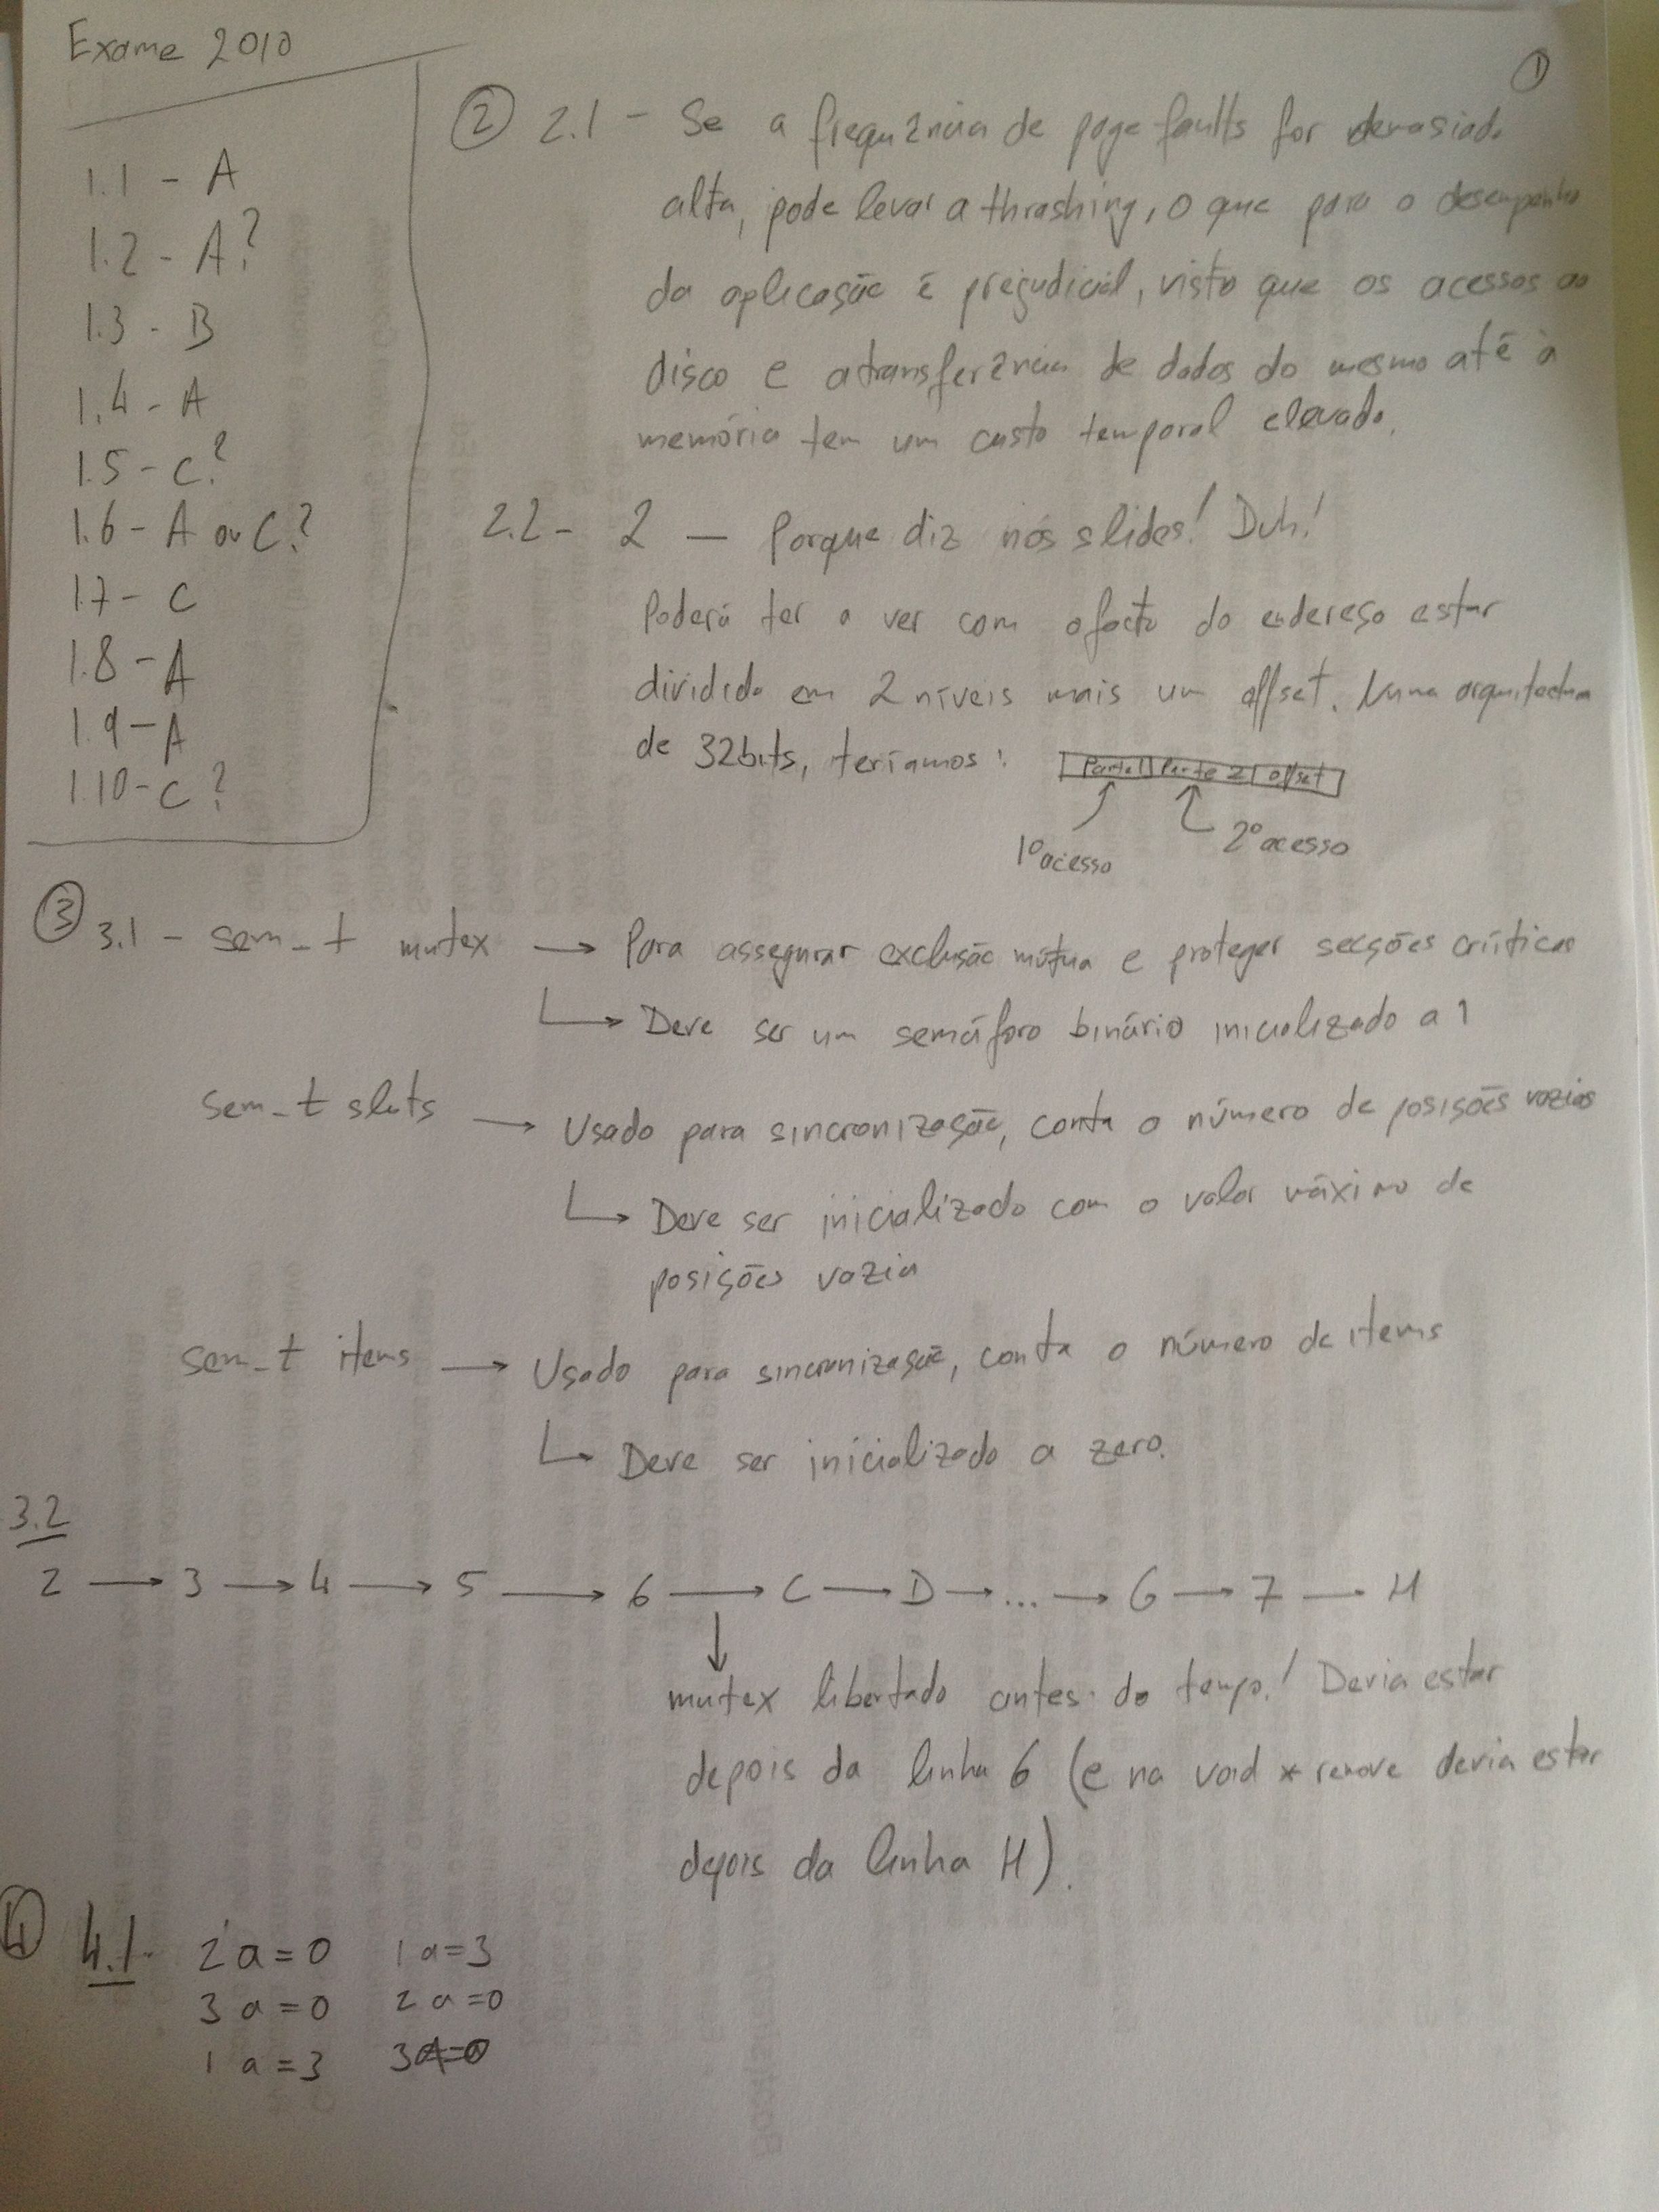 Exame 2010
1
1.1 - A
1.2 - A?
1.3 - B
1.4 - A
1.5 - C?
1.6 - A ou C?
1.7 - C
1.8 - A
1.9 - A
1.10 - C?
2 2.1 - Se a frequência de page faults for demasiado
alta, pode levar a thrashing, o que para o desempenho
da aplicação é prejudicial, visto que os acessos ao
disco e a transferência de dados do mesmo até à
memória tem um custo temporal elevado.
2.2 - 2 — Porque diz nos slides! Duh!
Poderá ter a ver com o facto do endereço estar
dividido em 2 níveis mais um offset. Numa arquitectura
de 32bits, teríamos: Parte 1 Parte 2 offset
1º acesso 2º acesso
3 3.1 - sem_t mutex → Para assegurar exclusão mútua e proteger secções críticas
↳ Deve ser um semáforo binário inicializado a 1
sem_t slots → Usado para sincronização, conta o número de posições vazias
↳ Deve ser inicializado com o valor máximo de
posições vazia
sem_t items → Usado para sincronização, conta o número de items
↳ Deve ser inicializado a zero.
3.2
2 → 3 → 4 → 5 → 6 → C — D → ... → G → 7 — H
↓
mutex libertado antes do tempo! Devia estar
depois da linha 6 (e na void * remove devia estar
depois da linha H).
4 4.1. 2 a=0 1 a=3
3 a=0 2 a=0
1 a=3 3 a=0